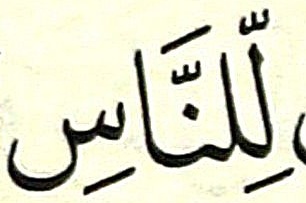 لِّلنَّاسِ